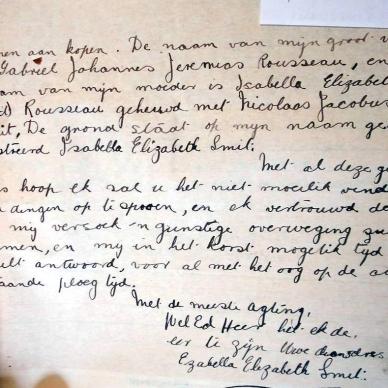 nen aan kopen. De naam van mijn groot v
Gabriel Johannes Jeremias Rousseau, en
am van mijn moeder is Isabella Elizabe
Rousseau gehuwd met Nicolaas Jacobus
it, De grond staat op mijn naam ge
streerd Isabella Elizabeth Smit.
Met al deze g
s hoop ek sal u het niet moeilik vind
dingen op te spooren, en ek vertrouwd de
mij versoek 'n gunstige overweging
men, en mij in het korst mogelik tyd
ult antwoord, voor al met het oog op de a
aande ploeg tijd.
Met de meeste agting,
Wel Ed Heer het ek de
eer te zijn Uwe
Ezabella Elizabeth Smit.